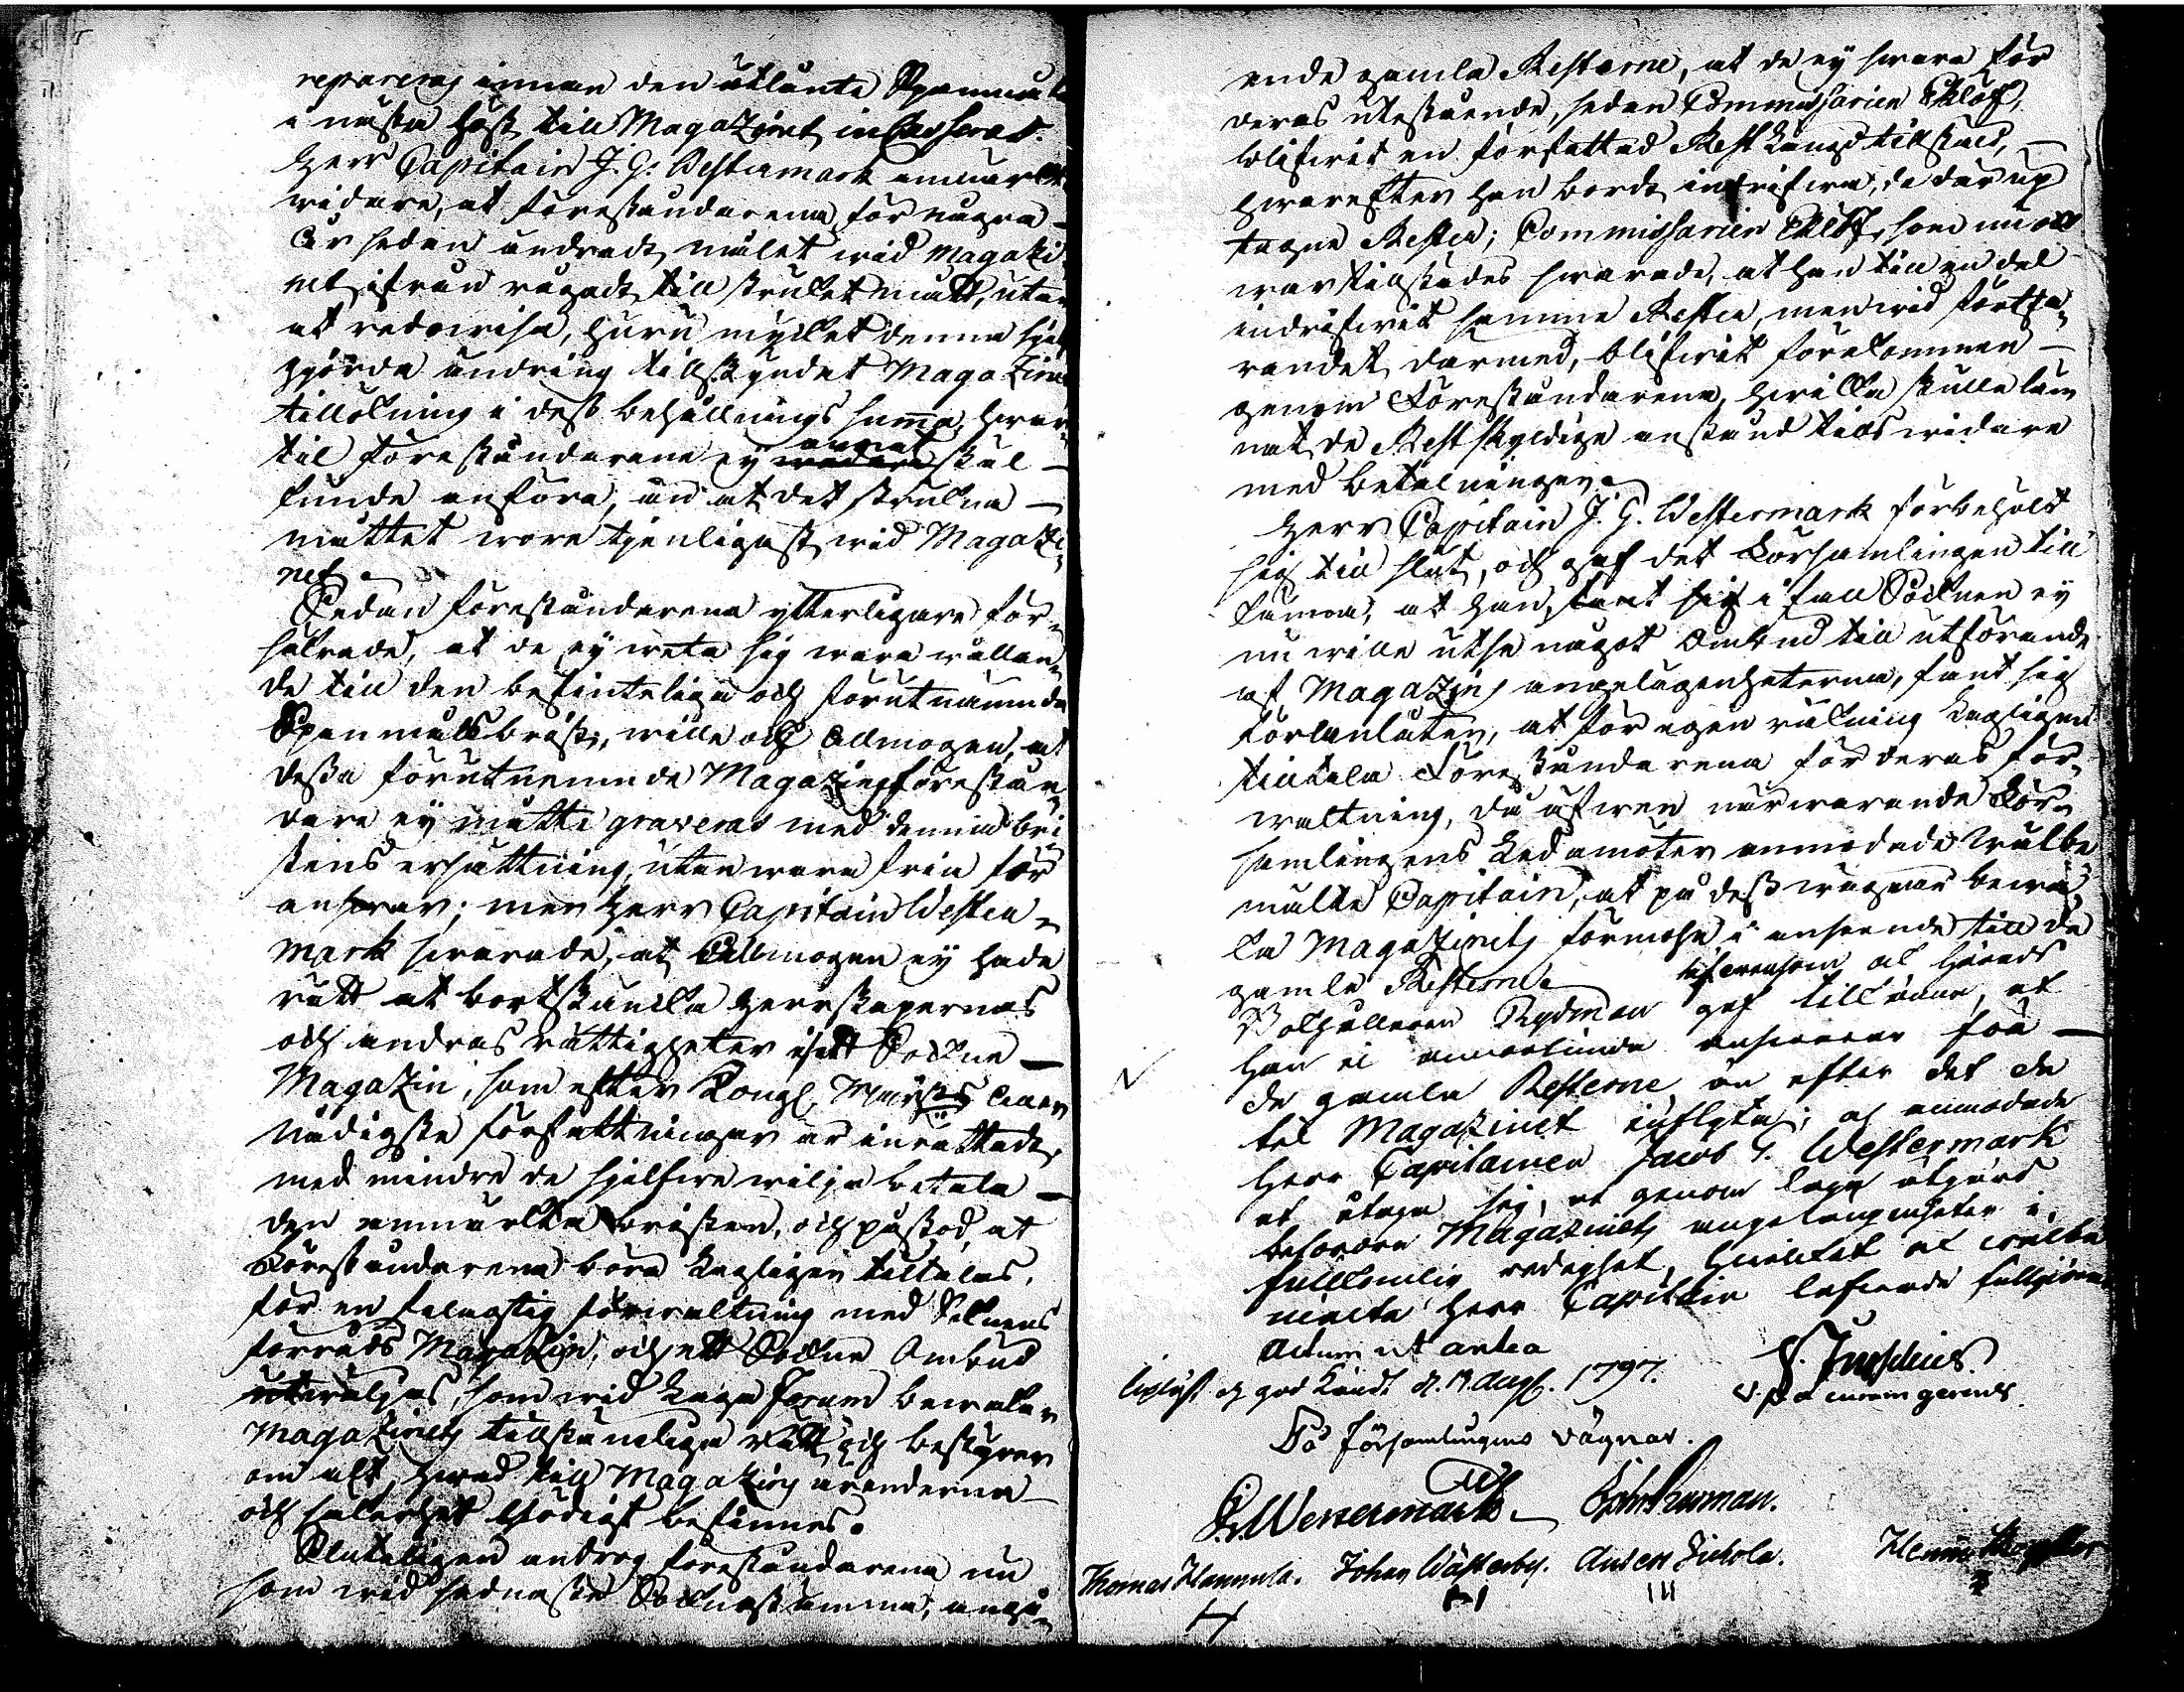 repareras innan den utlånte Spanmåln
i nästa höst till Magazinet incasseras.
Herr Capitain J. G. Westermark anmärkte
widare, at föreståndarena för några
år sedan ändradt målet wid Magazi-
net, ifrån rågadt till strukit mått, utan
at redowisa, huru mycket denna sjelf
gjorda ändring tillskyndat Magazinet
tillökning i dess behållnings summa, hwar-
til föreståndarene ej annat skäl
kunde anföra, än at det strukna
måttet wore tjenligast wid Magazi-
net.
Sedan föreståndarena ytterligare för-
säkrade, at de ej weta sig wara wållan-
de till den befinteliga och förutnämnda
Spanmåls brist, wille och Allmogen, at
dessa förutnemnde Magazins förestån-
dare ej måtte graveras med denna bri-
stens ersättning, utan wara fria för
answar; men Herr Capitain Wester-
mark swarade, at Allmogen ej hade
rätt at bortskänka Herrskapernas
och andras rättigheter i ett Sockne
Magazin, som efter Kongl. Maj:ts aller
nådigste författningar är inrättadt,
med mindre de sjelfwe wilja betala
den anmärkta bristen, och påstod, at
Föreståndarena böra Lagligen tilltalas,
för en felagtig förwaltning med Socknens
förråds Magazin, och ett Sockne Ombud
utwäljas, som wid Laga Forum bewakar
Magazinets tillständiga rätt och bestyrer
om alt, hwad till Magazins ärenderne
och säkerhet nödigt befinnes.
Sluteligen androg föreståndarena nu
som wid sednaste Socknestämma, angå-
ende gamla Resterne, at de ej swara för
deras utestående, sedan Commissarien Eklöf,
blifwit en författad Rest Längd tillstäld,
hwarefter han bordt indrifwa, de där up
tagne Rester; Commissarien Eklöf, som nu ock
war tillstädes swarade, at han till en del
indrifwit samma Rester, men wid fortfa-
randet därmed, blifwit förekommen
genom Föreståndarena, hwilka skulle läm
nat de Restskyldige anstånd tills widare
med betalningen.
Herr Capitain J. G. Westermark förbehölt
sig till slut, och gaf det Församlingen till
känna, at han, i fall Socknen ej
nu wille utse något Ombud till utförande
af Magazins angelägenheterna, fant sig
förlanlåten, at för egen räkning Lagligen
tilltala Föreståndarena för deras för-
waltning, då äfwen närwarande För-
samlingens Ledamöter anmodade wälbe
mälte Capitain, at på dess wägnar bewa-
ka Magazinets förmohn i anseende till de
gamle Resterne äfwensom at Härads
Bokhållaren Rydman gaf tillkänna, at
han ei annorlunda answarar för
de gamla Resterne, än efter det de
til Magazinet influta; och anmodade
Herr Capitainen Jacob G. Westermark
at åtaga sig, at genom laga åtgärd
befordra Magazinets angelägenheter i
fullkomlig redighet, hwilket at wälbe
mälte Herr Capitain lofwade fullgiöra
Actum ut antea
Upläst och god Kändt d. 13 Aug. 1797.
På Församlingens Wägnar.
J. G. Westermark
Thomas Hannula. Johan Wästerby. Anders Sickola.